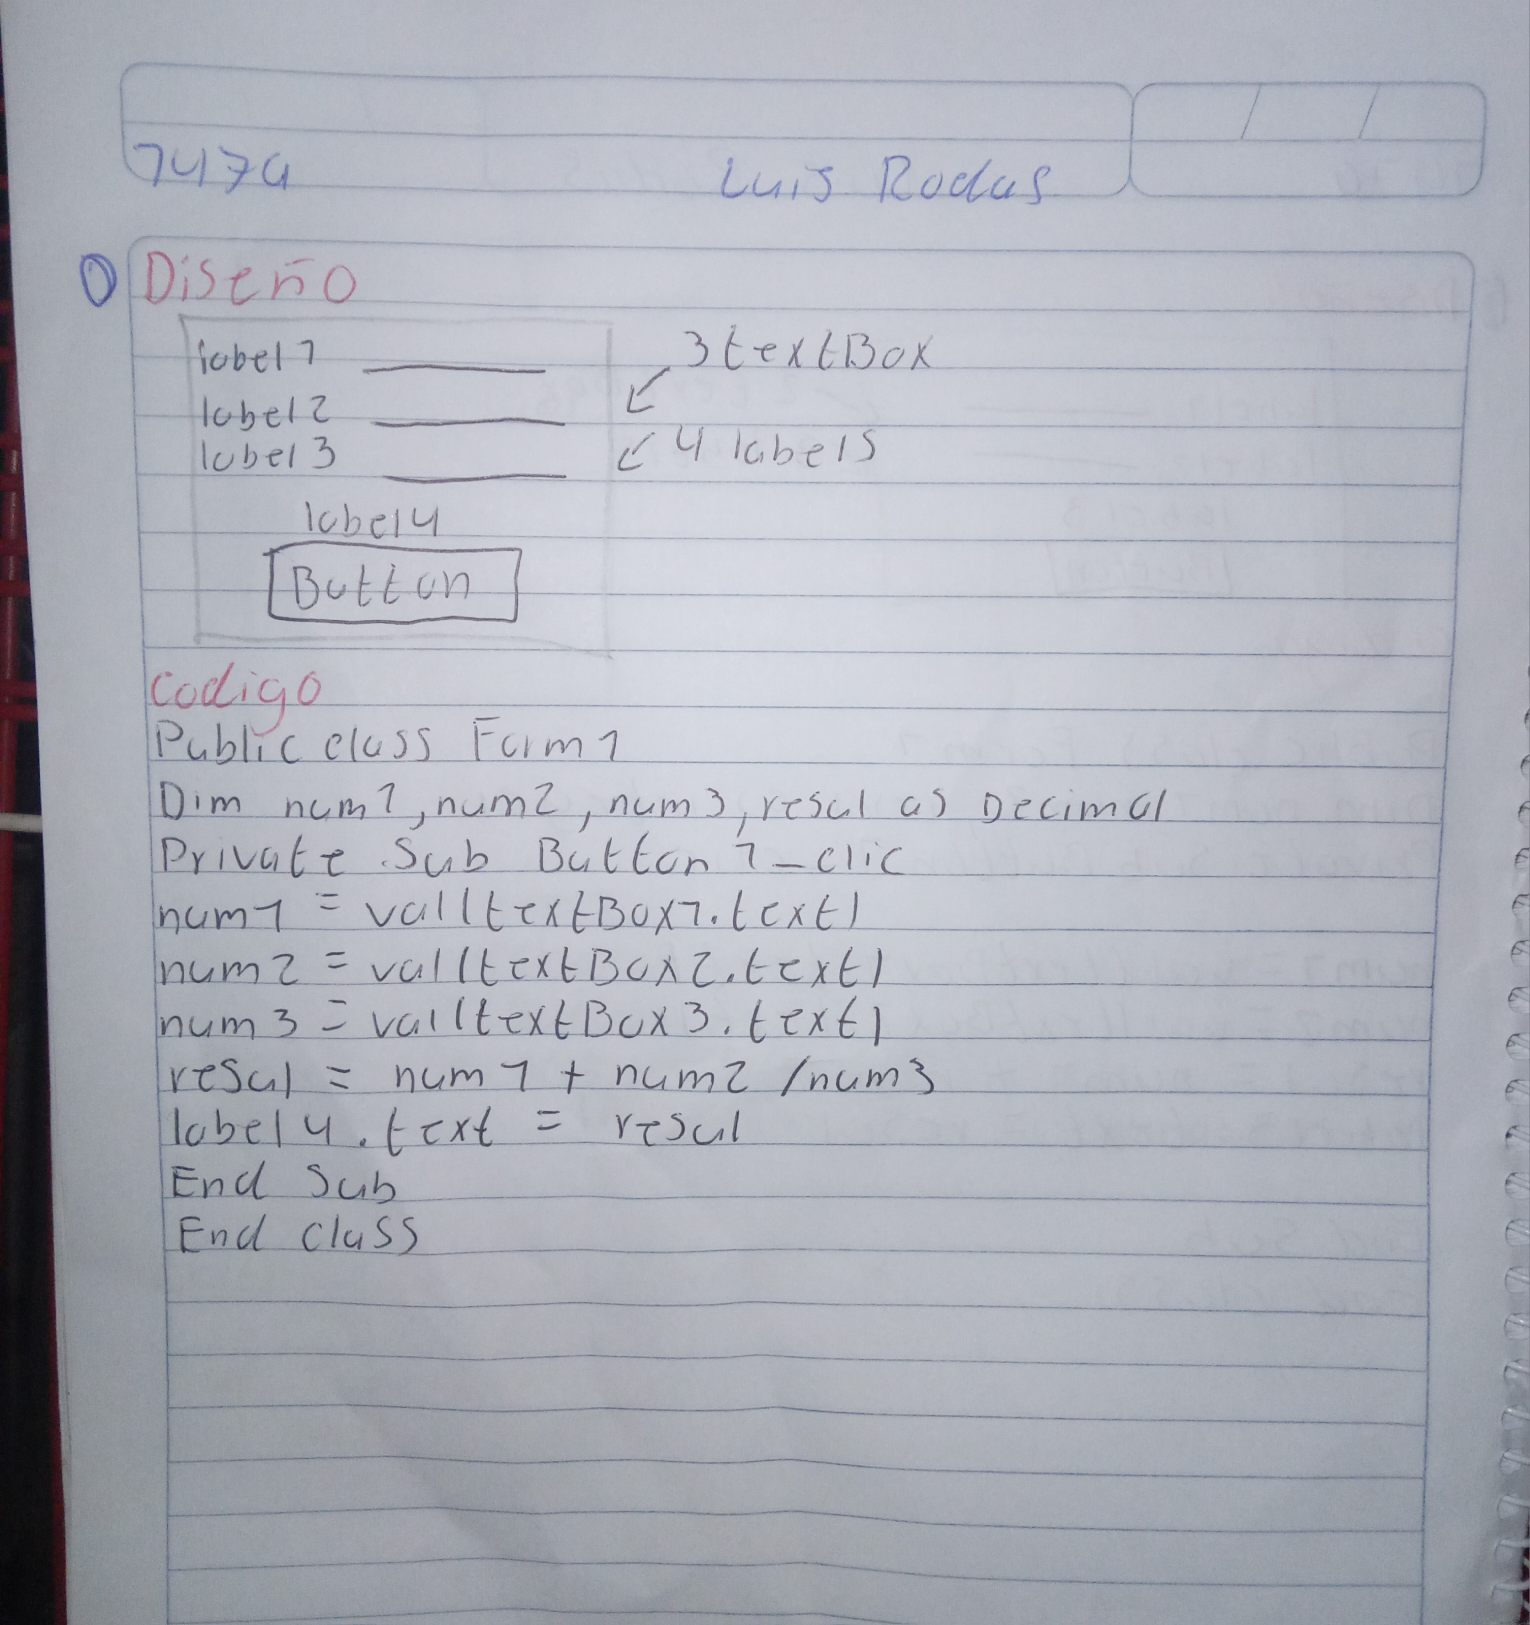 7474 Luis Rodas
Diseño
label1 3 textBox
label2
label3 4 labels
label4
Button
codigo
Public class Form1
Dim num1, num2, num3, resul as Decimal
Private Sub Button1_clic
num1 = val(textBox1.text)
num2 = val(textBox2.text)
num3 = val(textBox3.text)
resul = num1 + num2 /num3
label4.text = resul
End Sub
End class